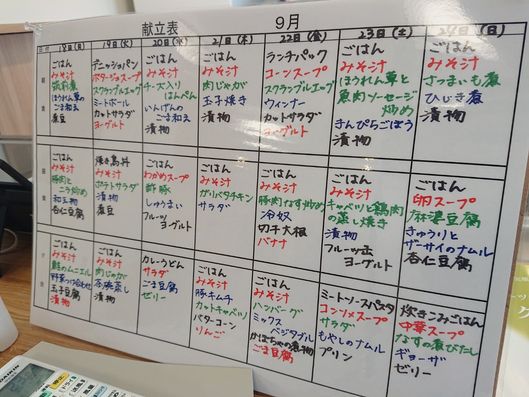 献立表 9月
18日(月) 19日(火) 20日(水) 21日(木) 22日(金) 23日(土) 24日(日)
ごはん
みそ汁
筑前煮
ほうれん草の
ごま和え
煮豆
デニッシュパン
ポタージュスープ
スクランブルエッグ
ミートボール
カットサラダ
ヨーグルト
ごはん
みそ汁
チーズ入り
はんぺん
いんげんの
ごま和え
漬物
ごはん
みそ汁
肉じゃが
玉子焼き
漬物
ランチパック
コーンスープ
スクランブルエッグ
ウィンナー
カットサラダ
ヨーグルト
ごはん
みそ汁
ほうれん草と
魚肉ソーセージ
炒め
きんぴらごぼう
漬物
ごはん
みそ汁
さつまいも煮
ひじき煮
漬物
ごはん
みそ汁
豚肉と
ニラ炒め
和え物
杏仁豆腐
焼き鳥丼
みそ汁
ポテトサラダ
漬物
煮豆
ごはん
わかめスープ
酢豚
しゅうまい
フルーツ
ヨーグルト
ごはん
みそ汁
ガリバタチキン
サラダ
ごはん
みそ汁
豚肉なす炒め
冷奴
切干大根
バナナ
ごはん
みそ汁
キャベツと鶏肉
の蒸し焼き
漬物
フルーツ缶
ヨーグルト
ごはん
卵スープ
麻婆豆腐
きゅうりと
ザーサイのナムル
杏仁豆腐
ごはん
みそ汁
鮭のムニエル
野菜つけ合わせ
玉子豆腐
漬物
ごはん
みそ汁
肉じゃが
茶碗蒸し
漬物
カレーうどん
サラダ
ごま豆腐
ゼリー
ごはん
みそ汁
豚キムチ
カットキャベツ
バターコーン
りんご
ごはん
みそ汁
ハンバーグ
ミックス
ベジタブル
かぼちゃの煮物
ごま豆腐
ミートソースパスタ
コンソメスープ
サラダ
もやしのナムル
プリン
炊きこみごはん
中華スープ
なすの煮びたし
ギョーザ
ゼリー